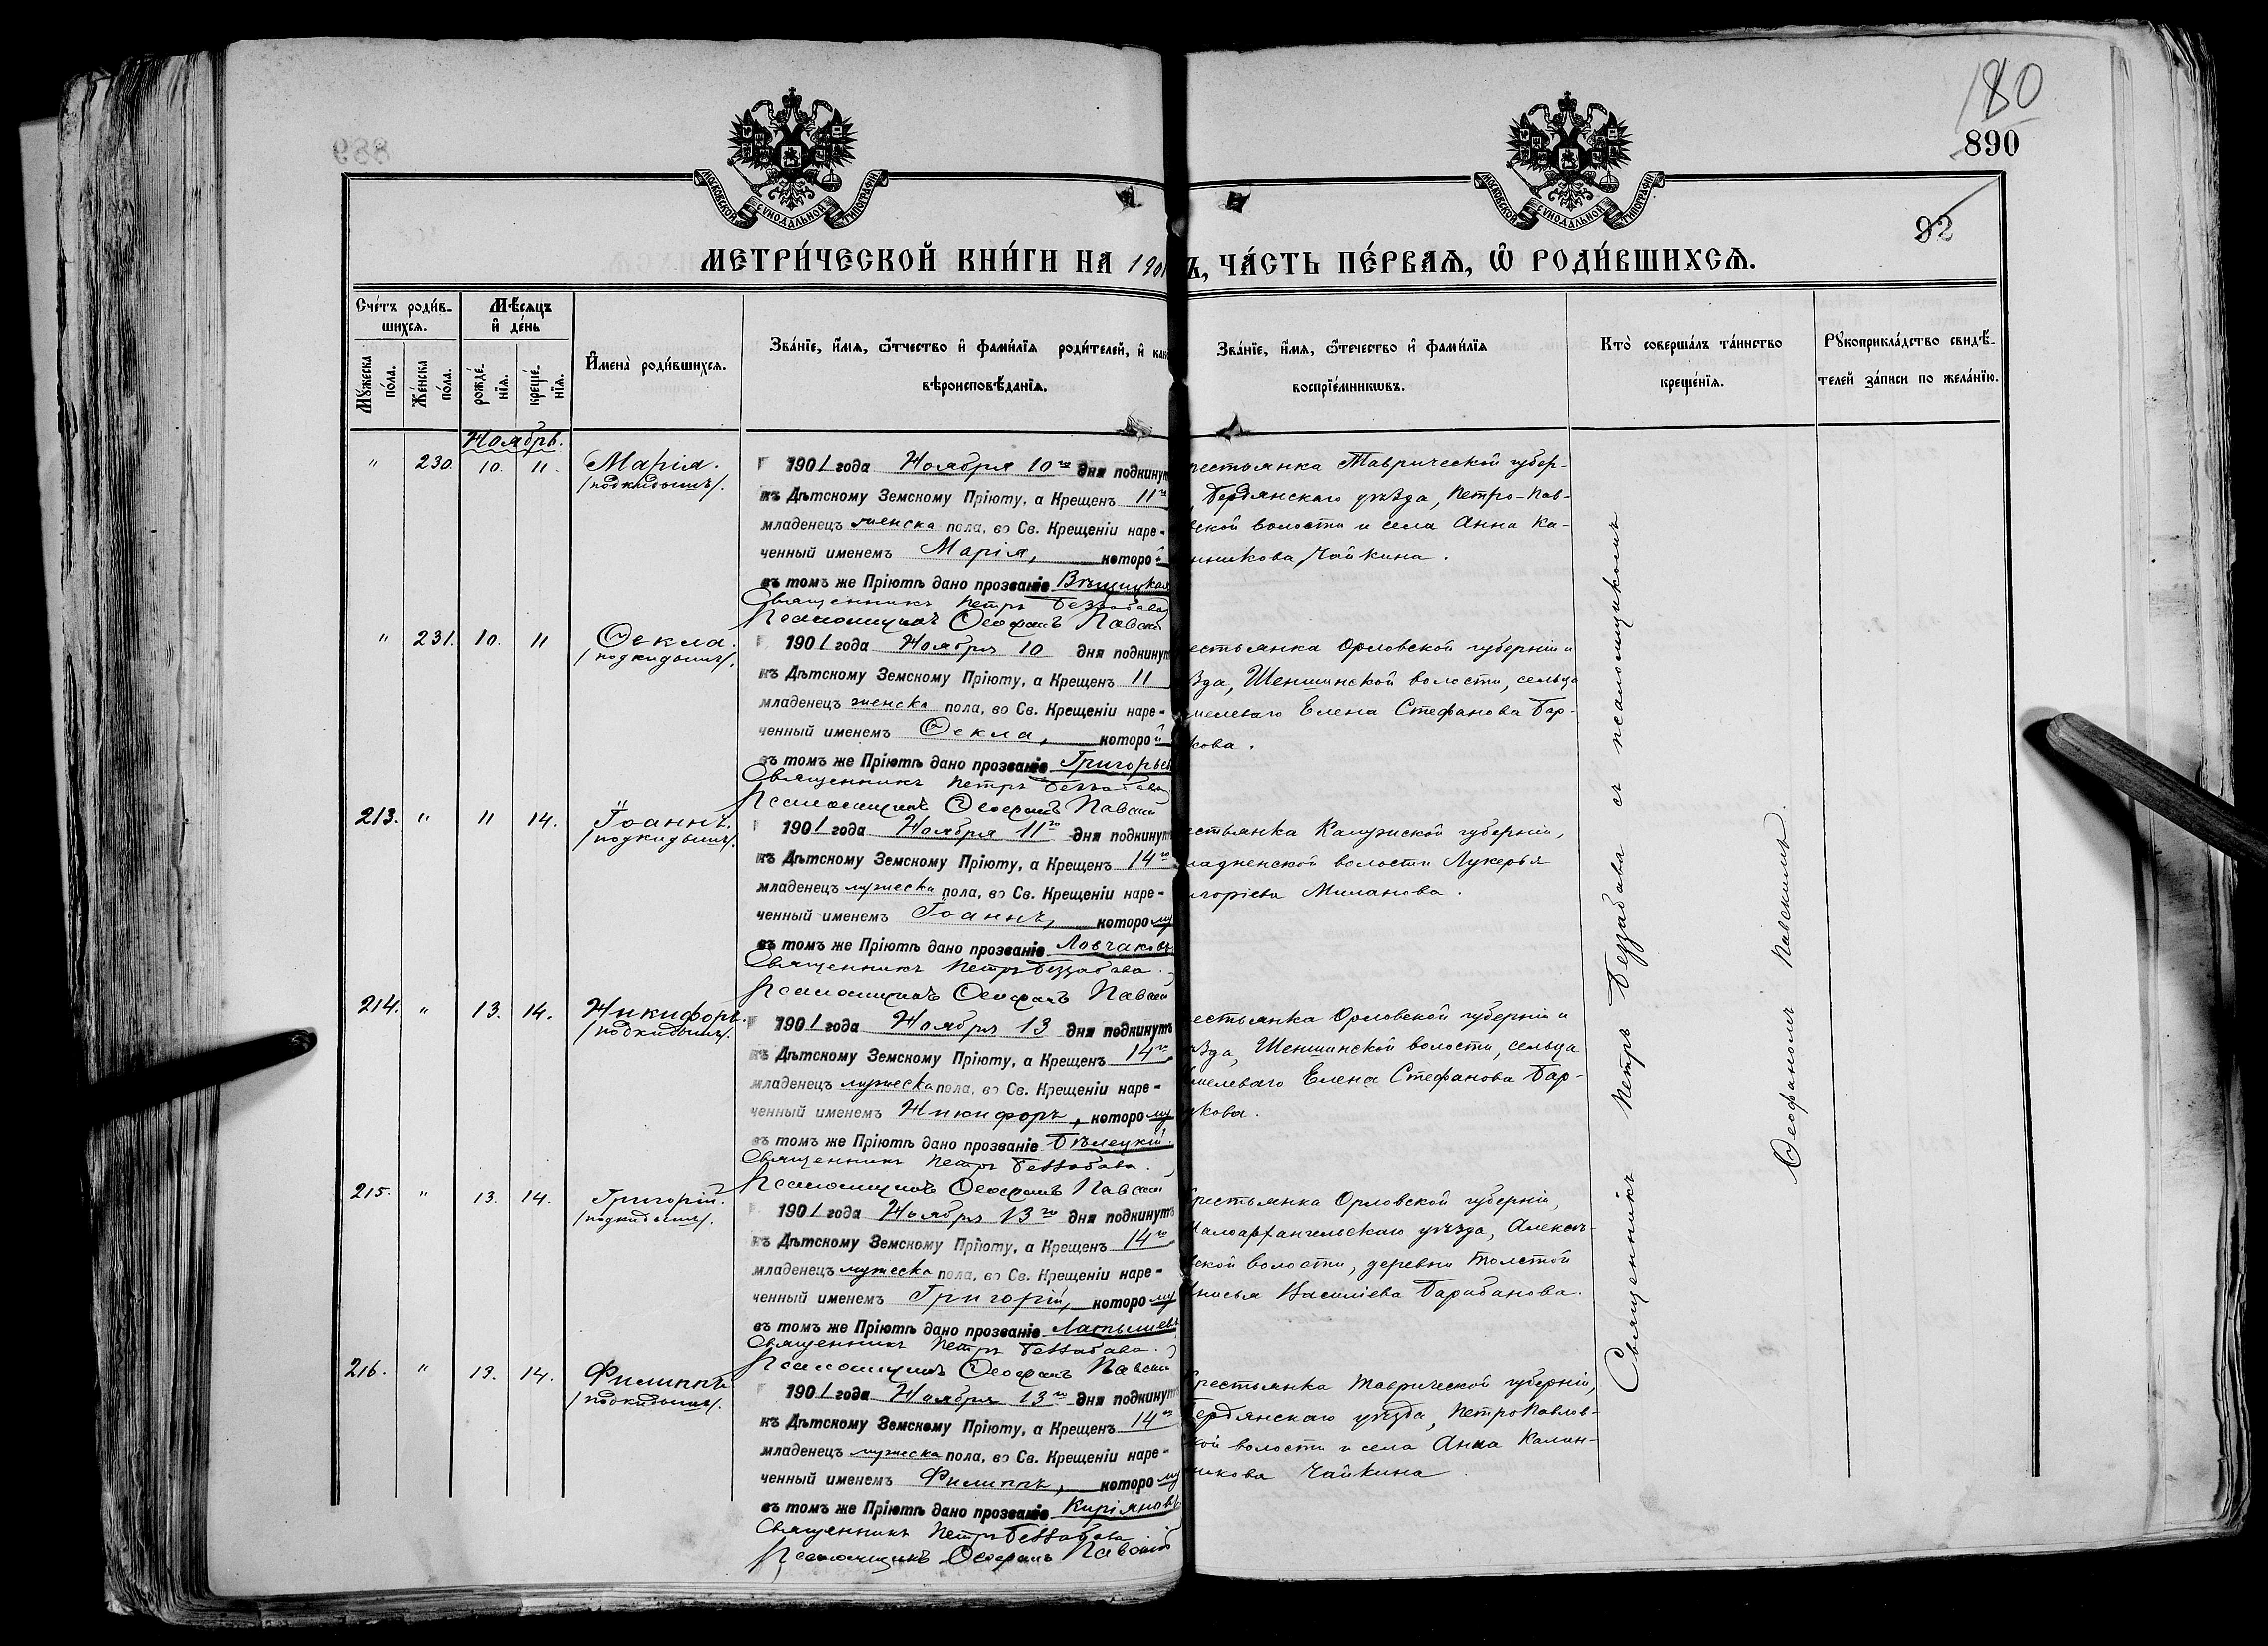 180
890
92
МОСКОВСКОЙ СУНОДАЛЬНОЙ ТИПОГРАФІИ
МОСКОВСКОЙ СУНОДАЛЬНОЙ ТИПОГРАФІИ
МЕТРИ́ЧЕСКОЙ КНИ́ГИ НА 1901
Ъ, ЧА́СТЬ ПЕ́РВАѦ, Ѡ҆ РОДИ́ВШИХСѦ.
Сче́тъ роди́в-
шихсѧ.
Мꙋжеска
по́ла.
Же́нска
по́ла.
Мѣ́сѧцъ
и҆ де́нь
рожде́-
нїѧ.
креще́-
нїѧ.
И҆мена̀ роди́вшихсѧ.
Зва́нїе, и҆́мѧ, ѻ҆́тчество и҆ фами́лїѧ роди́телей, и҆ как
вѣроисповѣ́данїѧ.
Зва́нїе, и҆́мѧ, ѻ҆́течество и҆ фами́лїѧ
воспрїе́мникѡвъ.
Кто̀ соверша́лъ та́инство
креще́нїѧ.
Рꙋкоприкла́дство свидѣ́-
телей за́писи по жела́нїю.
Ноябрь.
" 230. 10. 11. Марія.
/подкидышъ/.
1901 года Ноября 10го дня подкинут
къ Дѣтскому Земскому Пріюту, а Крещенъ 11го
младенецъ женска пола, во Св. Крещеніи наре-
ченный именемъ Марія, которой
въ томъ же Пріютѣ дано прозваніе Вѣщицкая
Священникъ Петръ Беззабава
Псаломщикъ Ѳеофанъ Павскій
рестьянка Таврической губер-
Бердянскаго уѣзда, Петро-Пав-
ской волости и села Анна Ка-
нникова Чайкина.
" 231. 10. 11 Ѳекла.
/подкидышъ/.
1901 года Ноября 10 дня подкинут
къ Дѣтскому Земскому Пріюту, а Крещенъ 11
младенецъ женска пола, во Св. Крещеніи наре-
ченный именемъ Ѳекла, которой
въ томъ же Пріютѣ дано прозваніе Григорьев
Священникъ Петръ Беззабава
Псаломщикъ Ѳеофанъ Павскій
естьянка Орловской губерніи и
ѣзда, Шеншинской волости, сельца
мелеваго Елена Стефанова Бар-
кова.
213. " 11 14. Іоаннъ.
/подкидышъ/.
1901 года Ноября 11го дня подкинут
къ Дѣтскому Земскому Пріюту, а Крещенъ 14го
младенецъ мужеска пола, во Св. Крещеніи наре-
ченный именемъ Іоаннъ, которому
въ томъ же Пріютѣ дано прозваніе Ловчаковъ
Священникъ Петръ Беззабава.
Псаломщикъ Ѳеофанъ Павскій
естьянка Калужской губерніи,
ладненской волости Лукерья
игоріева Миланова.
214. " 13. 14. Никифоръ.
/подкидышъ/.
1901 года Ноября 13 дня подкинутъ
къ Дѣтскому Земскому Пріюту, а Крещенъ 14го
младенецъ мужеска пола, во Св. Крещеніи наре-
ченный именемъ Никифоръ, которому
въ томъ же Пріютѣ дано прозваніе Бѣлецкій.
Священникъ Петръ Беззабава.
Псаломщикъ Ѳеофанъ Павскій
естьянка Орловской губерніи и
ѣзда, Шеншинской волости, сельца
мелеваго Елена Стефанова Бар-
кова.
215. " 13. 14. Григорій.
/подкидышъ/.
1901 года Ноября 13го дня подкинутъ
къ Дѣтскому Земскому Пріюту, а Крещенъ 14го
младенецъ мужеска пола, во Св. Крещеніи наре-
ченный именемъ Григорій, которому
въ томъ же Пріютѣ дано прозваніе Латышевъ
Священникъ Петръ Беззабава.
Псаломщикъ Ѳеофанъ Павскій
рестьянка Орловской губерніи,
Малоархангельскаго уѣзда, Алексѣ-
ской волости, деревни Толстой
Анисья Василіева Барабанова.
216. " 13. 14. Филиппъ.
/подкидышъ/.
1901 года Ноября 13го дня подкинутъ
къ Дѣтскому Земскому Пріюту, а Крещенъ 14го
младенецъ мужеска пола, во Св. Крещеніи наре-
ченный именемъ Филиппъ, которому
въ томъ же Пріютѣ дано прозваніе Киріяновъ
Священникъ Петръ Беззабава
Псаломщикъ Ѳеофанъ Павскій
рестьянка Таврической губерніи,
Бердянскаго уѣзда, Петропавлов-
кой волости и села Анна Калин-
никова Чайкина.
Священникъ Петръ Беззабава съ псаломщикомъ
Ѳеофаномъ Павскимъ.